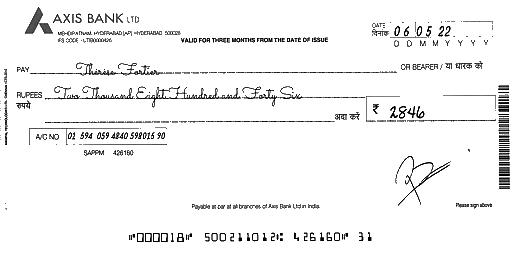 AXIS BANK LTD
MEHDIPATNAM, HYDERABAD [AP] HYDERABAD 500028
IFS CODE - UTIB0000426
VALID FOR THREE MONTHS FROM THE DATE OF ISSUE
DATE
दिनांक 06 05 22
D D M M Y Y Y Y
PAY Thérèse Fortier OR BEARER / या धारक को
RUPEES Two Thousand Eight Hundred and Forty Six
रुपये अदा करें ₹ 2846
A/C NO 02 594 059 4840 598015 90
SAPPM 426160
Payable at par at all branches of Axis Bank Ltd in India. Please sign above
⑈000018⑈ 500211012⑆ 426160⑈ 31